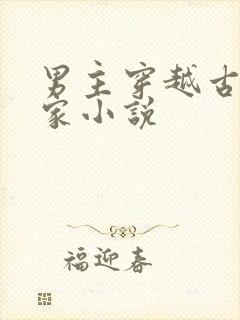 男主穿越古
家小说
福迎春